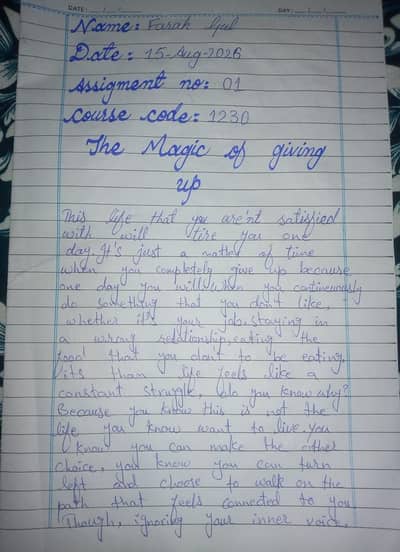 DATE: / /
DAY:
Name: Farah Gul
Date: 15-Aug-2026
Assigment no: 01
Course code: 1230
The Magic of giving
up
This life that you are'nt satisfied
with will tire you one
day. It's just a matter of time
when you completely give up because
one day you will, when you continuously
do something that you don't like,
whether it's your job, staying in
a wrong relationship, eating the
food that you don't to be eating.
it's than life feels like a
constant struggle, do you know why?
Because you know this is not the
life you know want to live, you
know you can make the other
choice, you know you can turn
left and choose to walk on the
path that feels connected to you.
Though, ignoring your inner voice,